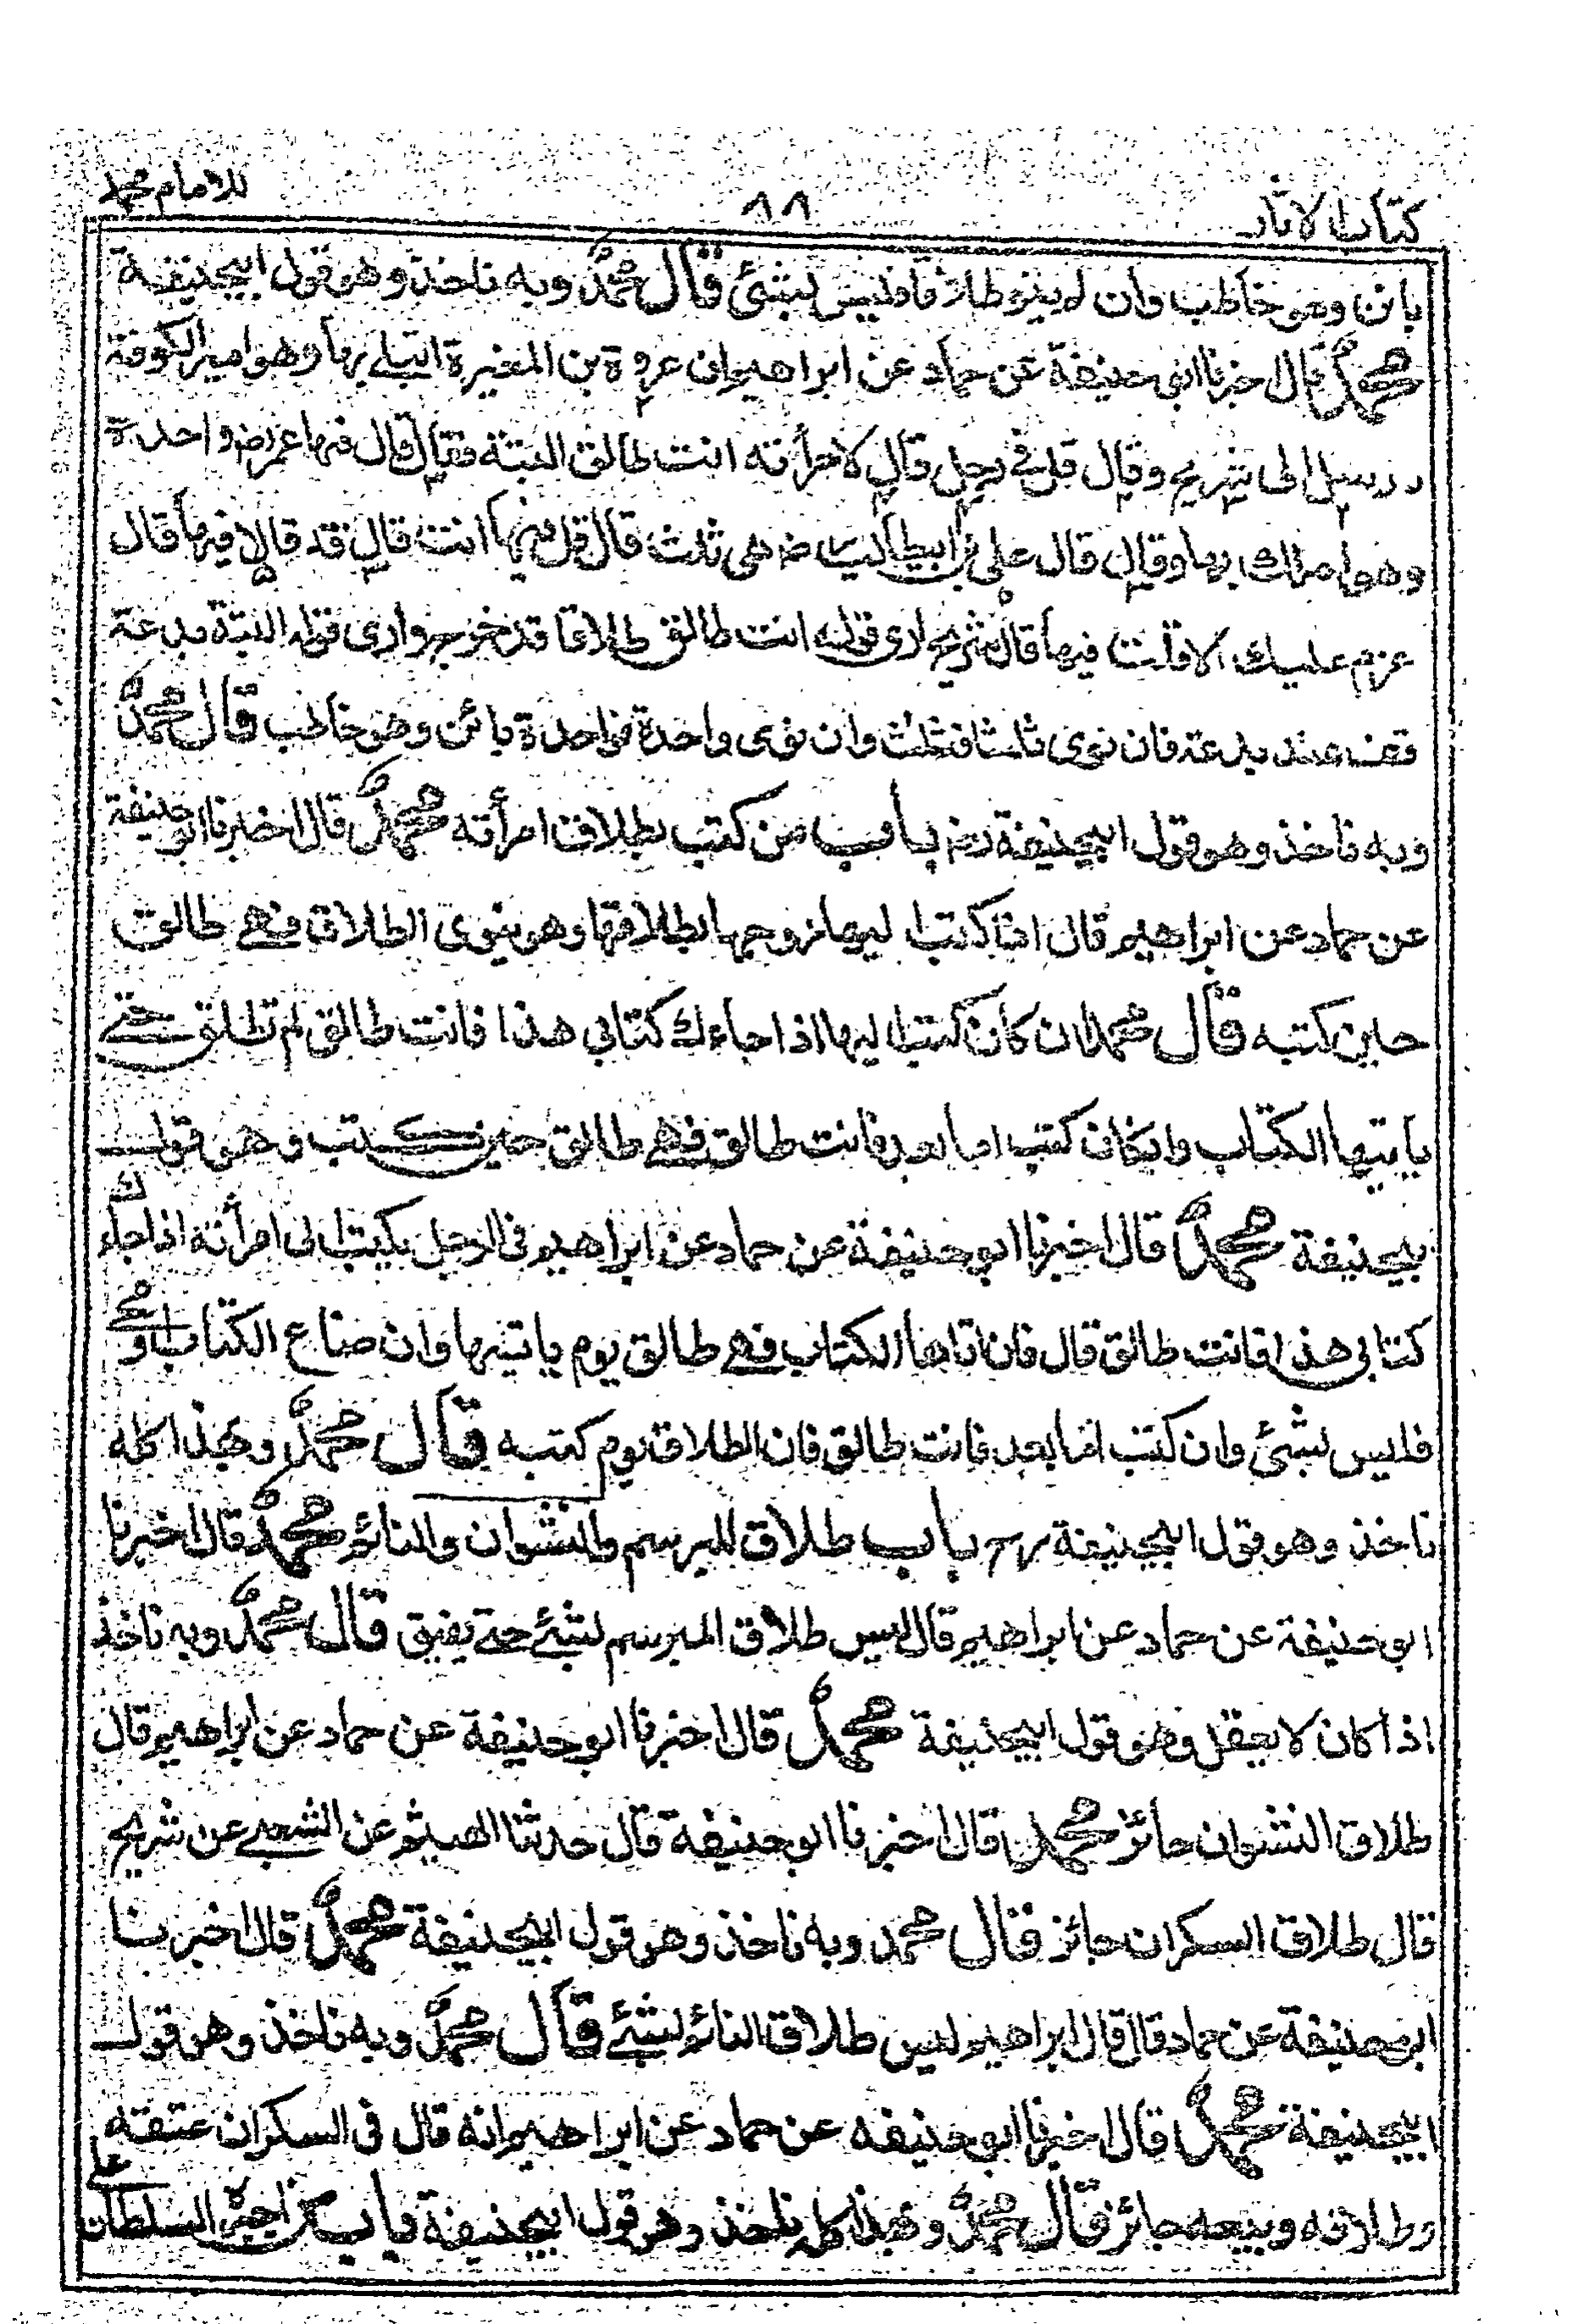 كتاب الآثار ٨٨ للامام محمد
بائن وهو خاطب وان لم ينو طلاقا فليس بشئ قال محمد وبه ناخذ وهو قول ابيحنيفة
محمد قال اخبرنا ابو حنيفة عن حماد عن ابراهيم ان عروة بن المغيرة ابتلى بها وهو امير الكوفة
ارسل الى شريح وقال قل في رجل قال لامرأته انت طالق البتة فقال قال فيها عمر رض واحدة
وهو املك بها وقال قال علي بن ابيطالب رض هي ثلث قال قل فيها انت قال قد قالا فيها قال
عزم عليك الا قلت فيها قال شريح ارى قوله انت طالق طلاقا قد خرج وارى قوله البتة بدعة
قف عند بدعته فان نوى ثلثا فثلث وان نوى واحدة فواحدة بائن وهو خاطب قال محمد
وبه ناخذ وهو قول ابيحنيفة رض باب من كتب بطلاق امرأته محمد قال اخبرنا ابو حنيفة
عن حماد عن ابراهيم قال اذا كتب اليها زوجها بطلاقها وهو ينوى الطلاق فهي طالق
حين كتبه قال محمد ان كان كتب اليها اذا جاءك كتابي هذا فانت طالق لم تطلق حتى
ياتيها الكتاب وان كان كتب اما بعد فانت طالق فهي طالق حين كتب وهو قول
بيحنيفة محمد قال اخبرنا ابو حنيفة عن حماد عن ابراهيم في الرجل يكتب الى امرأته اذا جاءك
كتابي هذا فانت طالق قال فان اتاها الكتاب فهي طالق يوم ياتيها وان ضاع الكتاب او محي
فليس بشئ وان كتب اما بعد فانت طالق فان الطلاق يوم كتبه قال محمد وبهذا كله
ناخذ وهو قول ابيحنيفة رح باب طلاق المبرسم والنشوان والنائم محمد قال اخبرنا
ابو حنيفة عن حماد عن ابراهيم قال ليس طلاق المبرسم بشئ حتى يفيق قال محمد وبه ناخذ
اذا كان لا يعقل وهو قول ابيحنيفة محمد قال اخبرنا ابو حنيفة عن حماد عن ابراهيم قال
طلاق النشوان جائز محمد قال اخبرنا ابو حنيفة قال حدثنا الهيثم عن الشعبي عن شريح
قال طلاق السكران جائز قال محمد وبه ناخذ وهو قول ابيحنيفة محمد قال اخبرنا
ابو حنيفة عن حماد قال قال ابراهيم ليس طلاق النائم بشئ قال محمد وبه ناخذ وهو قول
ابيحنيفة محمد قال اخبرنا ابو حنيفه عن حماد عن ابراهيم انه قال في السكران عتقه
وطلاقه وبيعه جائز قال محمد وبهذا كله ناخذ وهو قول ابيحنيفة باب من اجبره السلطان على